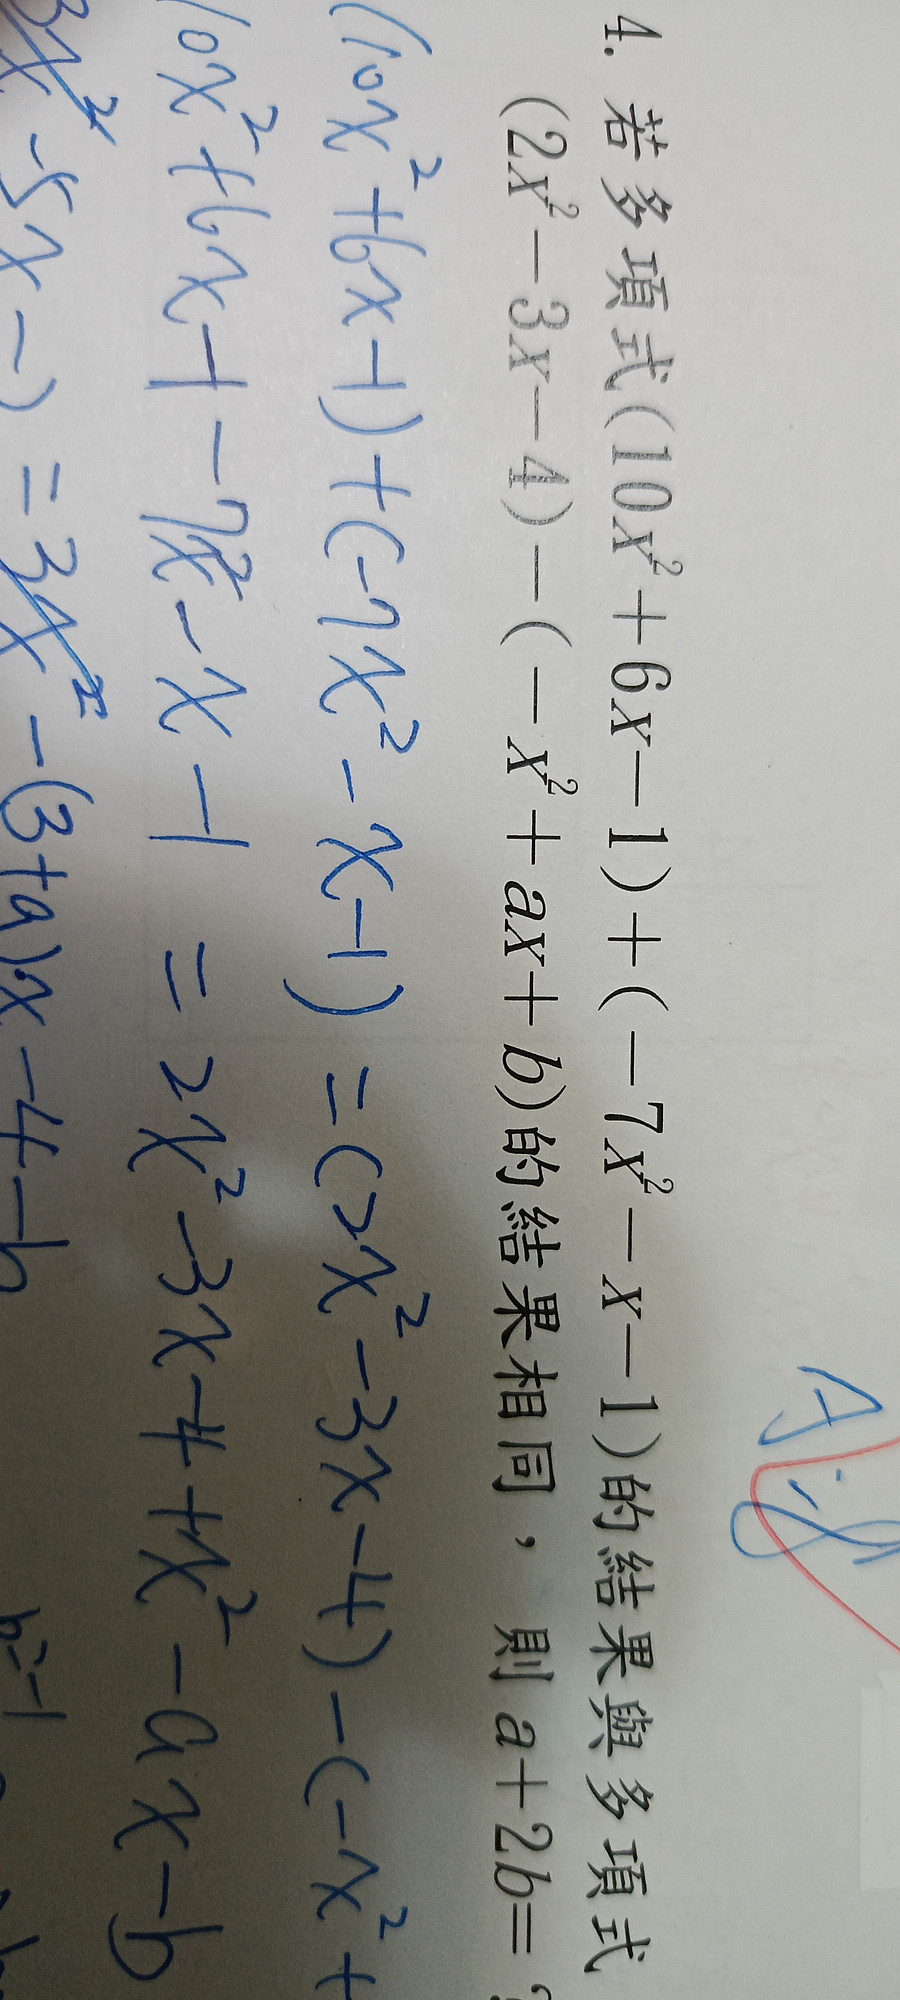 4. 若多項式(10x²+6x-1)+(-7x²-x-1)的結果與多項式
(2x²-3x-4)-(-x²+ax+b)的結果相同，則a+2b=?
(10x²+6x-1)+(-7x²-x-1)=(2x²-3x-4)-(-x²+
10x²+6x-1-7x²-x-1=2x²-3x-4+x²-ax-b
3x²-5x-)=3x²-(3+a)x-4-b
b=-1